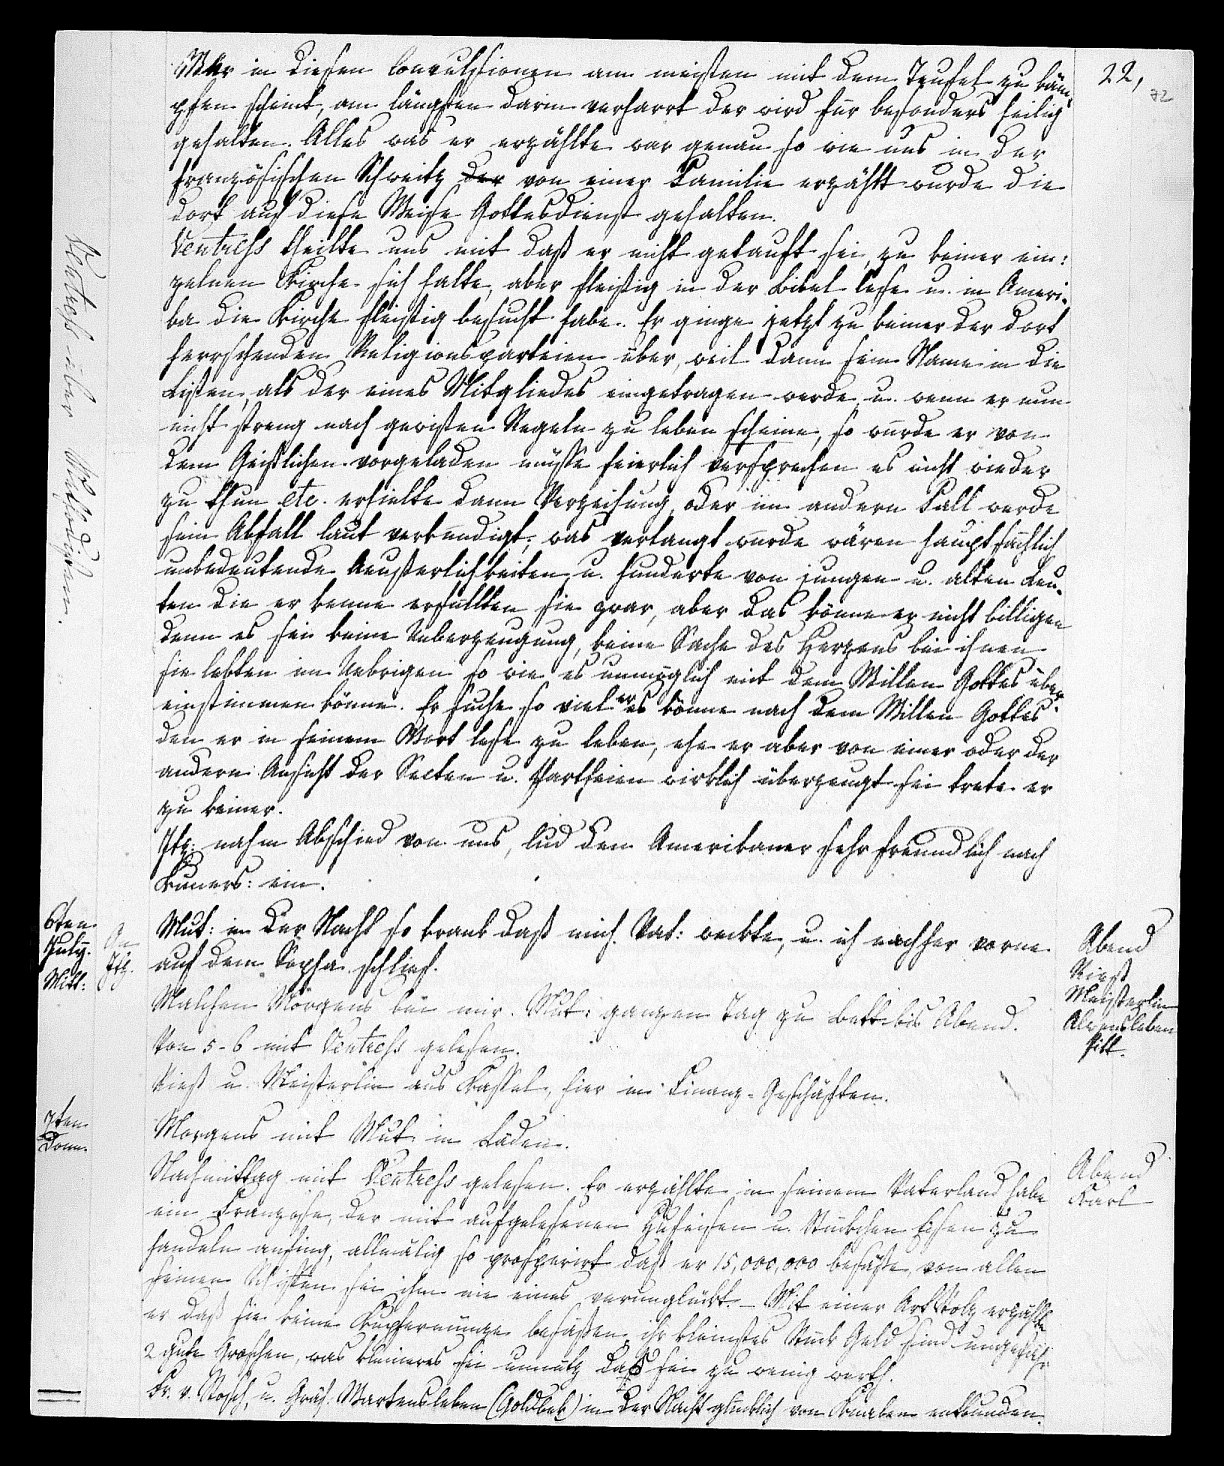 22,
72
Wer in diesen Convulsionen am meisten mit dem Teufel zu käm-
pfen scheint, am längsten darin verharrt der wird für besonders heilig
gehalten. Alles was er erzählte war genau so wie uns in der
französischen Schweitz der von einer Familie erzählt wurde die
dort auf diese Weise Gottesdienst gehalten.
Ventress theilte uns mit daß er nicht getauft sei, zu keiner ein:
zelnen Kirche sich halte, aber fleißig in der Bibel lese u. in Ameri-
ka die Kirche fleißig besucht habe. Er ginge jetzt zu keiner der dort
herrschenden Religionspartheien über, weil dann sein Name in die
Listen, als der eines Mitgliedes eingetragen werde, u. wenn er nun
nicht streng nach gewissen Regeln zu leben scheine, so würde er von
dem Geistlichen vorgeladen müsse feierlich versprechen es nicht wieder
zu thun etc. erhielte dann Verzeihung, oder im andern Fall werde
sein Abfall laut verkündigt; was verlangt würde wären hauptsächlich
unbedeutende Aeußerlichkeiten, u. hunderte von jungen u. alten Leu-
ten die er kenne erfüllten sie zwar, aber das könne er nicht billigen
denn es sei keine Ueberzeugung, keine Sache des Herzens bei ihnen
sie lebten im Uebrigen so wie es unmöglich mit dem Willen Gottes über-
einstimmen könne. Er suche so viel er es könne nach dem Willen Gottes
den er in seinem Wort lese zu leben, ehe er aber von einer oder der
andern Ansicht der Secten u. Partheien wirklich überzeugt sei trete er
zu keiner.
Itz: nahm Abschied von uns, lud den Amerikaner sehr freundlich nach
Kuners: ein.
Ventress über Methodisten.
6ten
July.
Mitt:
Itz.
Mut: in der Nacht so krank daß mich Vat: weckte, u. ich nachher vorne
auf dem Sopha schlief.
Malchen Morgens bei mir. Mut: ganzen Tag zu Bett bis Abend.
Von 5-6 mit Ventress gelesen.
Rieß u. Meisterlin aus Kassel, hier in Finanz-Geschäften.
Abend
Rieß
Meisterlin
Alvensleben
Pitt.
7ten
Donn.
Morgens mit Mut: in Läden.
Nachmittag mit Ventress gelesen. Er erzählte in seinem Vaterland habe
ein Franzose, der mit aufgelesenen Hufeisen u. Stückchen Eisen zu
handeln anfing, allmälig so prosperirt daß er 15,000,000 besäße, von allen
seinen Schiffen sei ihm nie eines verunglückt. - Mit einer Art Stolz erzählte
er daß sie keine Kupfermünze besäßen, ihr kleinstes Stück Geld sind ungefähr
2 gute Groschen, was kleineres sei unnütz das sei zu wenig werth.
Fr. v. Rosch, u. Gräf: Wartensleben (Goldbek) in der Nacht glücklich von Knaben entbunden.
Abend
Karl